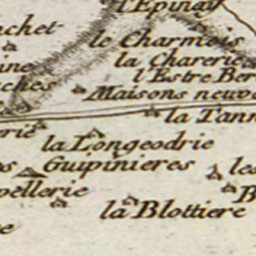 l'Epinay
chet-
le Charmois
la Charerie
ine
l'Estre Ber
ches
Maisons neuve
la Tann
erie
la Longeodrie
Guipinieres
les
pellerie
B
la Blottiere
e